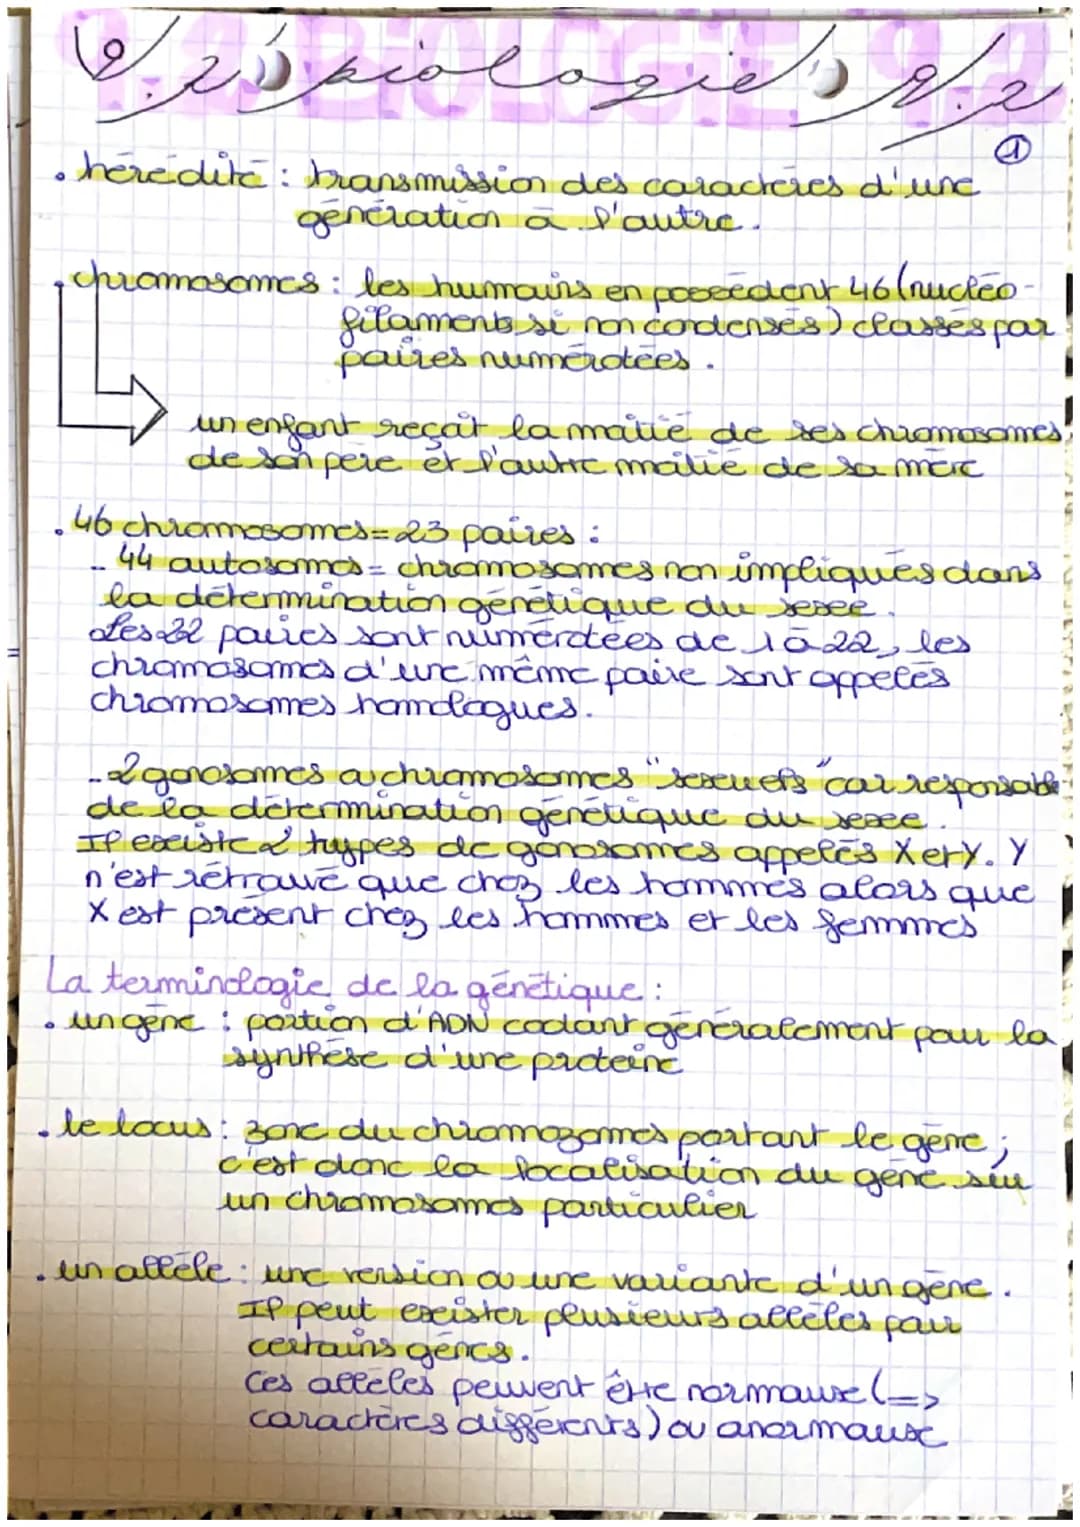 9.2 BIOLOGIE 9.2
9.2 biologie 9.2
1
. hérédité : transmission des caractères d'une
génération à l'autre.
. chromosomes : les humains en possèdent 46 (nucléo-
filaments si non condensés) classés par
paires numérotées.
un enfant reçoit la moitié de ses chromosomes
de son père et l'autre moitié de sa mère
. 46 chromosomes = 23 paires :
- 44 autosomes = chromosomes non impliqués dans
la détermination génétique du sexe.
Les 22 paires sont numérotées de 1 à 22, les
chromosomes d'une même paire sont appelés
chromosomes homologues.
- 2 gonosomes ou chromosomes "sexuels" car responsable
de la détermination génétique du sexe.
Il existe 2 types de gonosomes appelés X et Y. Y
n'est rétrouvé que chez les hommes alors que
X est présent chez les hommes et les femmes
La terminologie de la génétique :
. un gène : portion d'ADN codant généralement pour la
synthèse d'une protéine
. le locus : zone du chromozomes portant le gène ;
c'est donc la localisation du gène sur
un chromosomes particulier
. un allèle : une version ou une variante d'un gène.
Il peut exister plusieurs allèles pour
certains gènes.
Ces allèles peuvent être normaux (=>
caractères différents) ou anormaux